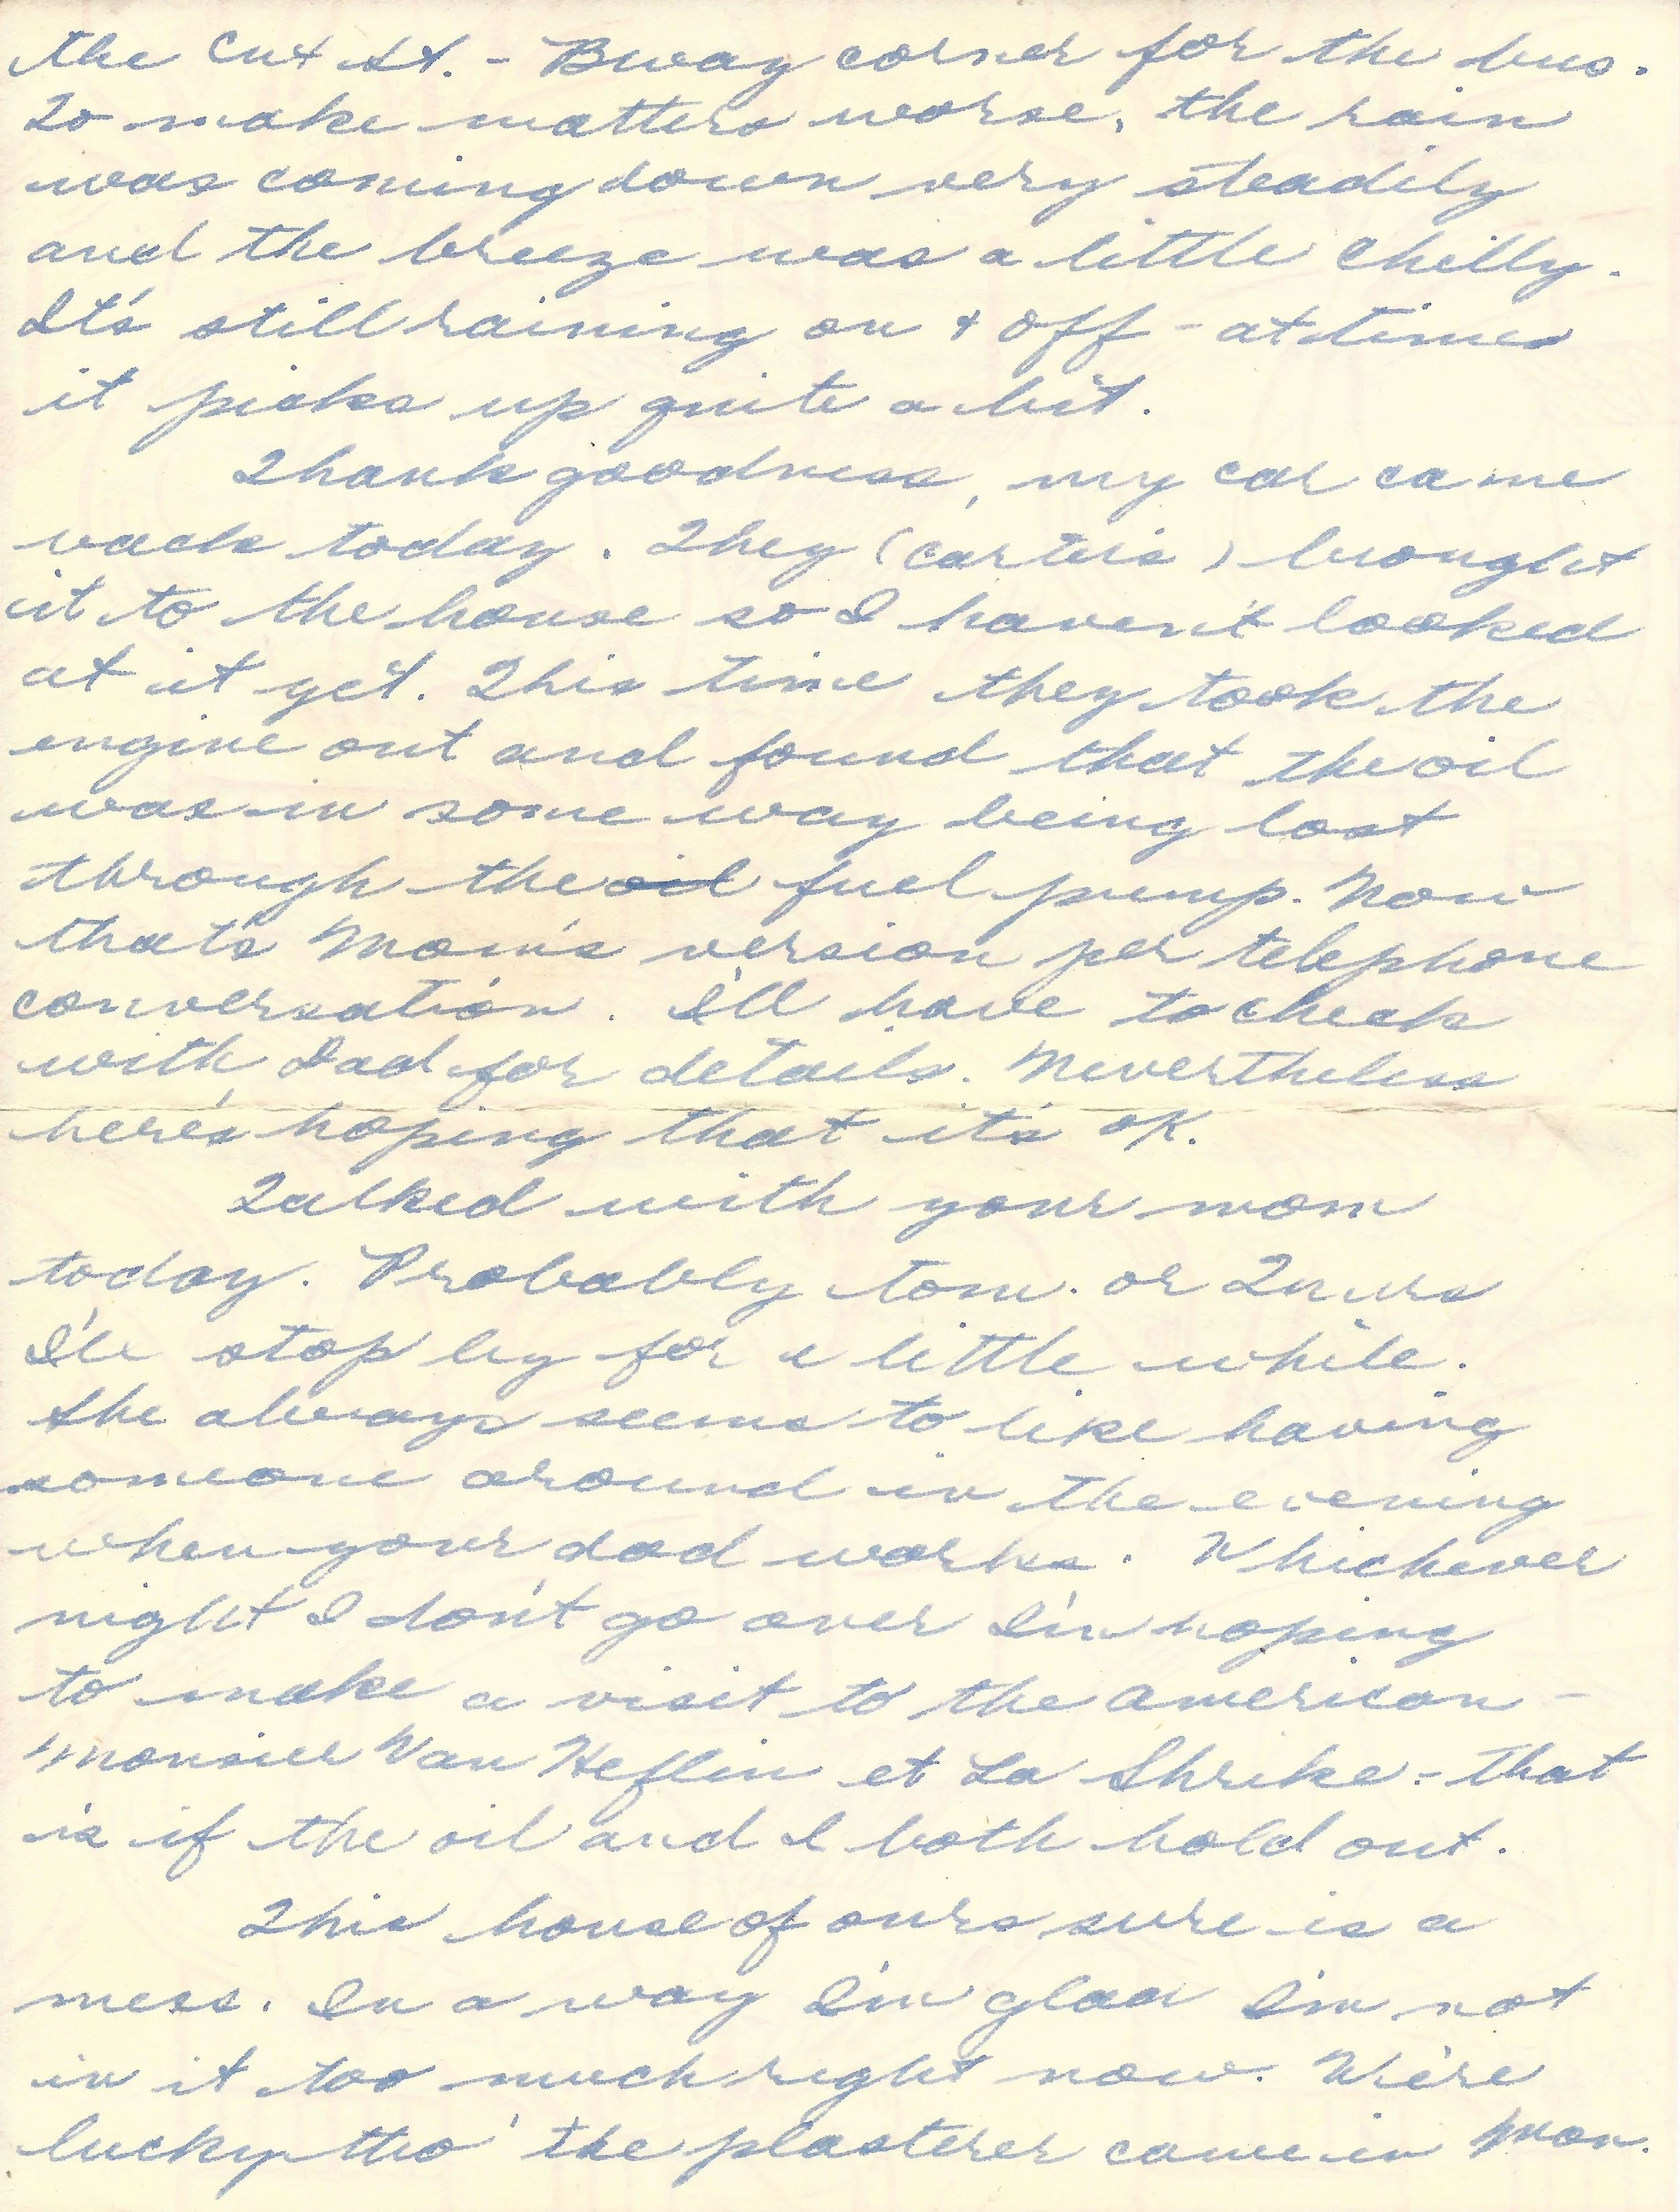 the Cut St. - Bway corner for the bus.
To make matters worse, the rain
was coming down very steadily
and the breeze was a little chilly.
It's still raining on + off - at times
it picks up quite a bit.
Thank goodness, my car came
back today. They (Carter's) brought
it to the house so I haven't looked
at it yet. This time they took the
engine out and found that the oil
was in some way being lost
through the oil fuel pump. Now
that's Mom's version per telephone
conversation. I'll have to check
with Dad for details. Nevertheless
here's hoping that it's OK.
Talked with your mom
today. Probably tom. or Thurs
I'll stop by for a little while.
She always seems to like having
someone around in the evening
when your dad works. Whichever
night I don't go over I'm hoping
to make a visit to the American -
Monsieur Van Heflin et La Shrike - that
is if the oil and I both hold out.
This house of ours sure is a
mess. In a way I'm glad I'm not
in it too much right now. We're
lucky tho' the plasterer came in Mon.